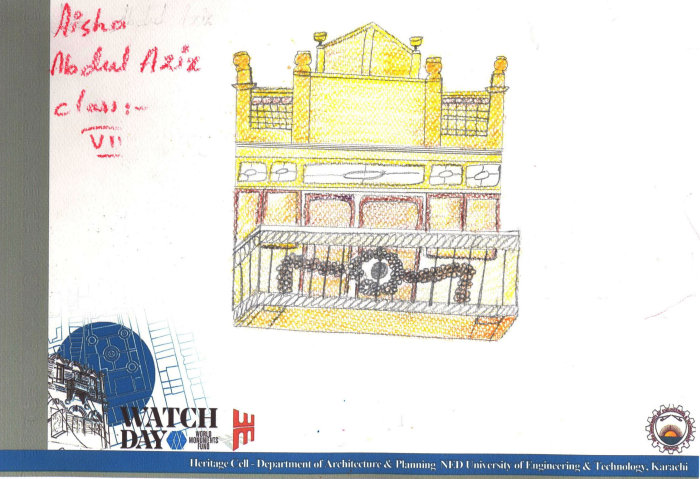 Aisha
Abdul Aziz
class:-
VII
WATCH
DAY
WORLD
MONUMENTS
FUND
Heritage Cell - Department of Architecture & Planning NED University of Engineering & Technology, Karachi